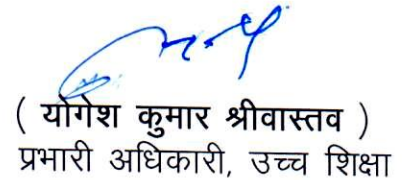 ( योगेश कुमार श्रीवास्तव )
प्रभारी अधिकारी, उच्च शिक्षा